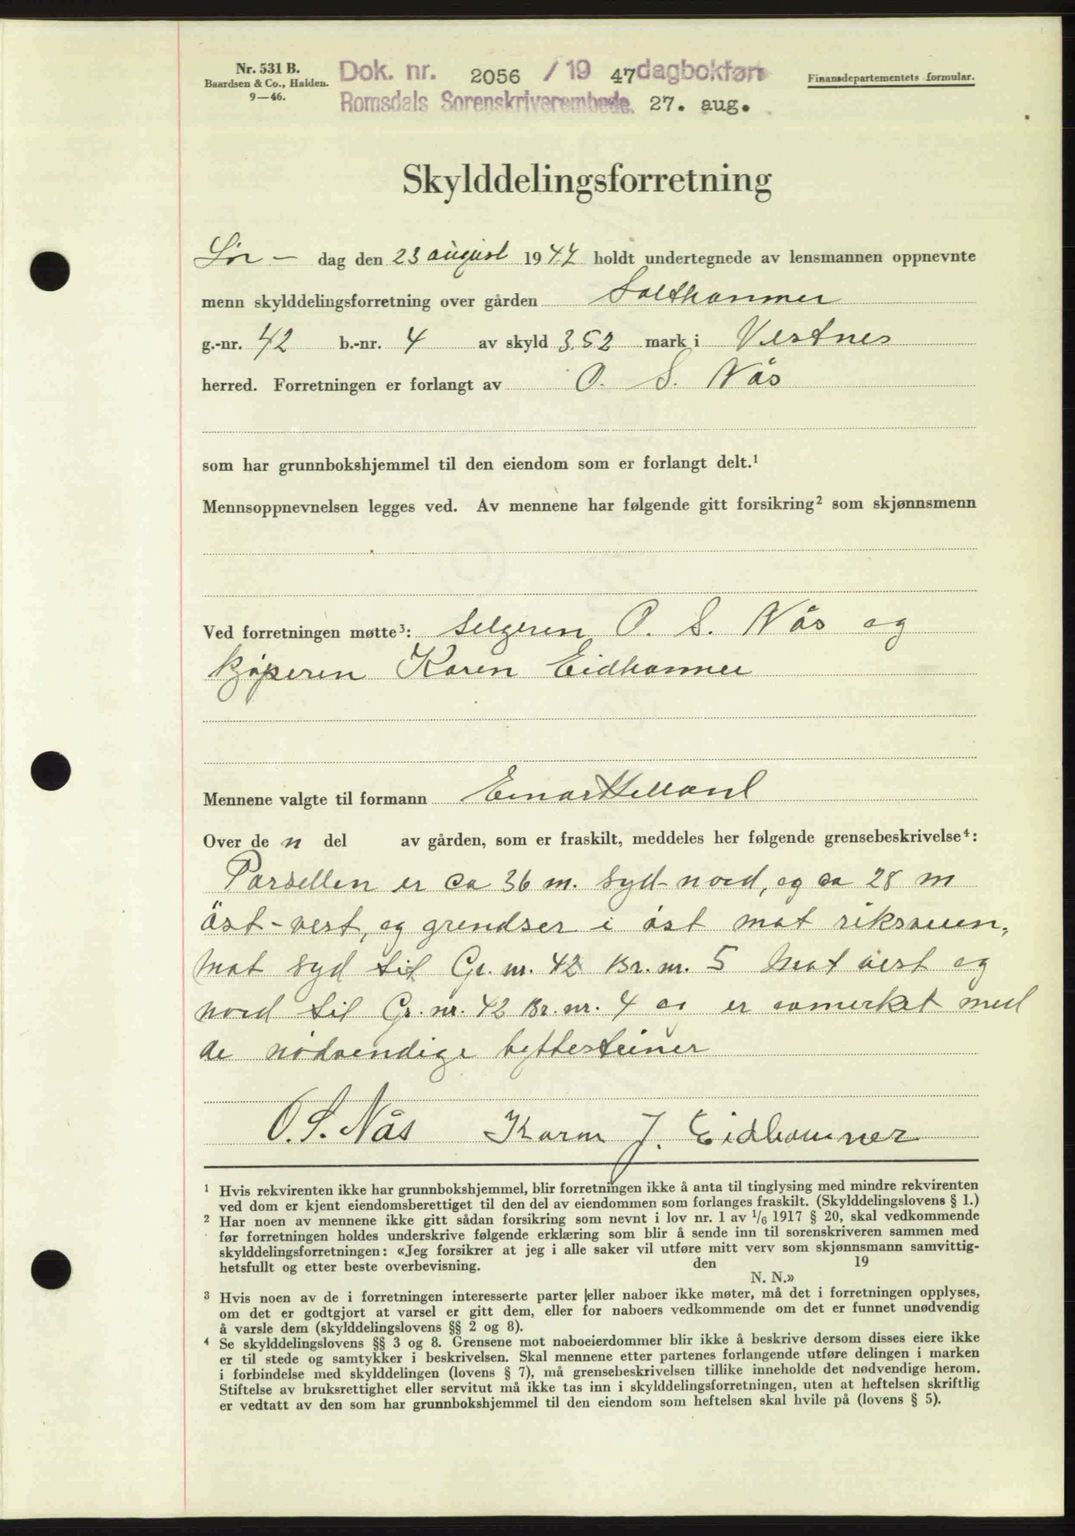 Nr. 531 B.
Baardsen & Co., Halden.
9—46.
Dok. nr. 2056 / 19 47 dagbokført
Romsdals Sorenskriverembede. 27. aug.
Finansdepartementets formular.
Skylddelingsforretning
Lør- dag den 23 august 1947 holdt undertegnede av lensmannen oppnevnte
menn skylddelingsforretning over gården Salthammer
g.-nr. 42 b.-nr. 4 av skyld 3.52 mark i Vestnes
herred. Forretningen er forlangt av O. S. Nås
som har grunnbokshjemmel til den eiendom som er forlangt delt.¹
Mennsoppnevnelsen legges ved. Av mennene har følgende gitt forsikring² som skjønnsmenn
Ved forretningen møtte³: selgeren O. S. Nås og
kjøperen Karen Eidhammer
Mennene valgte til formann Einar Helland
Over de n del av gården, som er fraskilt, meddeles her følgende grensebeskrivelse⁴:
Parsellen er ca 36 m. syd-nord, og ca 28 m
öst-vest, og grendser i øst mot riksveien,
mot syd til Gr. nr. 42 Br. nr. 5 Mot vest og
nord til Gr. nr. 42 Br. nr. 4 og er avmerket med
de nødvendige byttesteiner
O. S. Nås Karen J. Eidhammer
¹ Hvis rekvirenten ikke har grunnbokshjemmel, blir forretningen ikke å anta til tinglysing med mindre rekvirenten
ved dom er kjent eiendomsberettiget til den del av eiendommen som forlanges fraskilt. (Skylddelingslovens § 1.)
² Har noen av mennene ikke gitt sådan forsikring som nevnt i lov nr. 1 av ¹/₆ 1917 § 20, skal vedkommende
før forretningen holdes underskrive følgende erklæring som blir å sende inn til sorenskriveren sammen med
skylddelingsforretningen: «Jeg forsikrer at jeg i alle saker vil utføre mitt verv som skjønnsmann samvittig-
hetsfullt og etter beste overbevisning. den 19
N. N.»
³ Hvis noen av de i forretningen interesserte parter eller naboer ikke møter, må det i forretningen opplyses,
om det er godtgjort at varsel er gitt dem, eller for naboers vedkommende om det er funnet unødvendig
å varsle dem (skylddelingslovens §§ 2 og 8).
⁴ Se skylddelingslovens §§ 3 og 8. Grensene mot naboeierdommer blir ikke å beskrive dersom disses eiere ikke
er til stede og samtykker i beskrivelsen. Skal mennene etter partenes forlangende utføre delingen i marken
i forbindelse med skylddelingen (lovens § 7), må grensebeskrivelsen tillike inneholde det nødvendige herom.
Stiftelse av bruksrettighet eller servitut må ikke tas inn i skylddelingsforretningen, uten at heftelsen skriftlig
er vedtatt av den som har grunnbokshjemmel til den eiendom som heftelsen skal hvile på (lovens § 5).